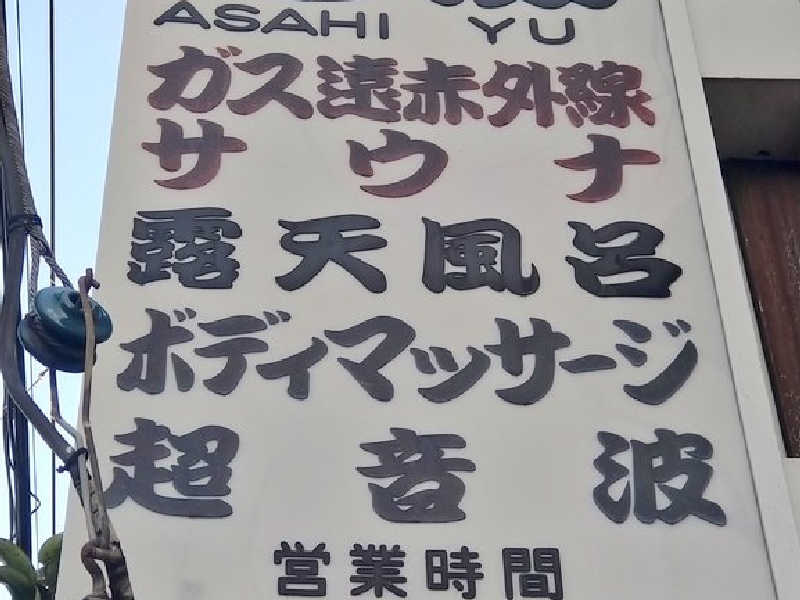 ASAHI YU
ガス遠赤外線
サウナ
露天風呂
ボディマッサージ
超音波
営業時間